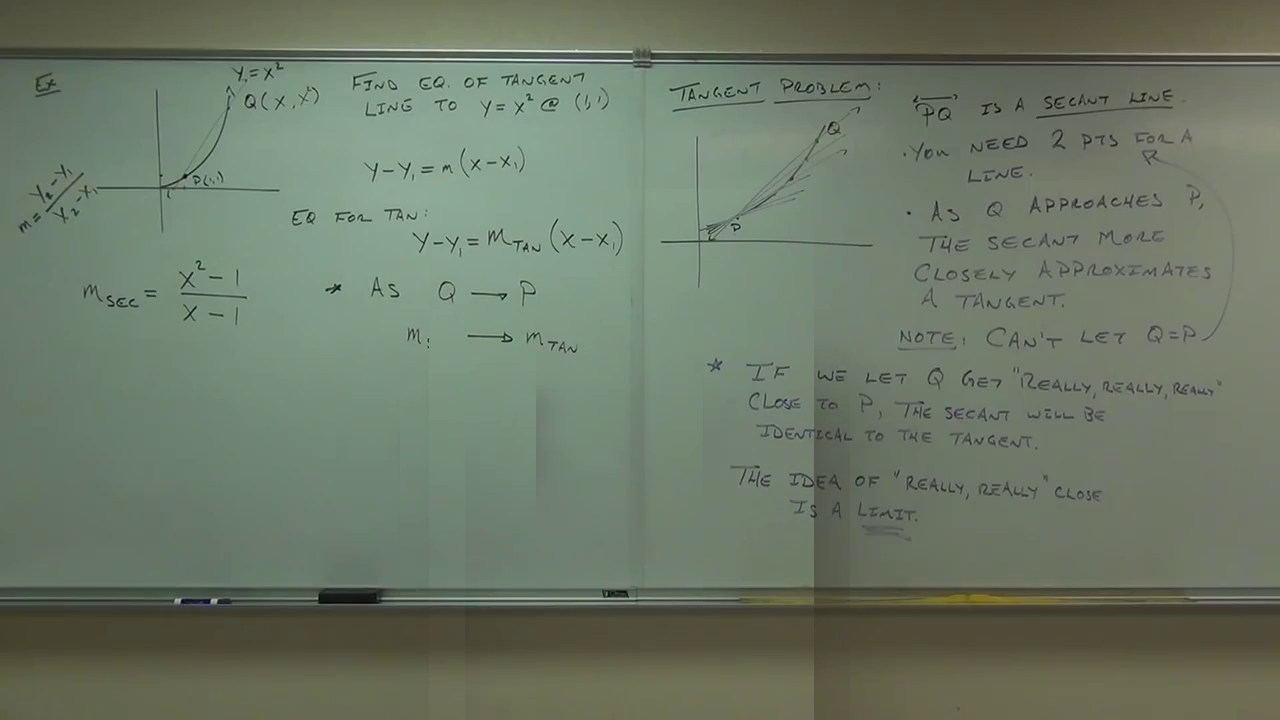 Ex
Y₁=X²
Q(X, X²)
P(1,1)
m = Y₂-Y₁/X₂-X₁
m_SEC = X²-1/X-1
FIND EQ. OF TANGENT
LINE TO Y=X² @ (1,1)
Y-Y₁=m(X-X₁)
EQ FOR TAN:
Y-Y₁=m_TAN(X-X₁)
* AS Q → P
m: → m_TAN
TANGENT PROBLEM:
Q
P
PQ IS A SECANT LINE.
· YOU NEED 2 PTS FOR A
LINE.
· AS Q APPROACHES P,
THE SECANT MORE
CLOSELY APPROXIMATES
A TANGENT.
NOTE: CAN'T LET Q=P
* IF WE LET Q GET "REALLY, REALLY, REALLY"
CLOSE TO P, THE SECANT WILL BE
IDENTICAL TO THE TANGENT.
THE IDEA OF "REALLY, REALLY" CLOSE
IS A LIMIT.